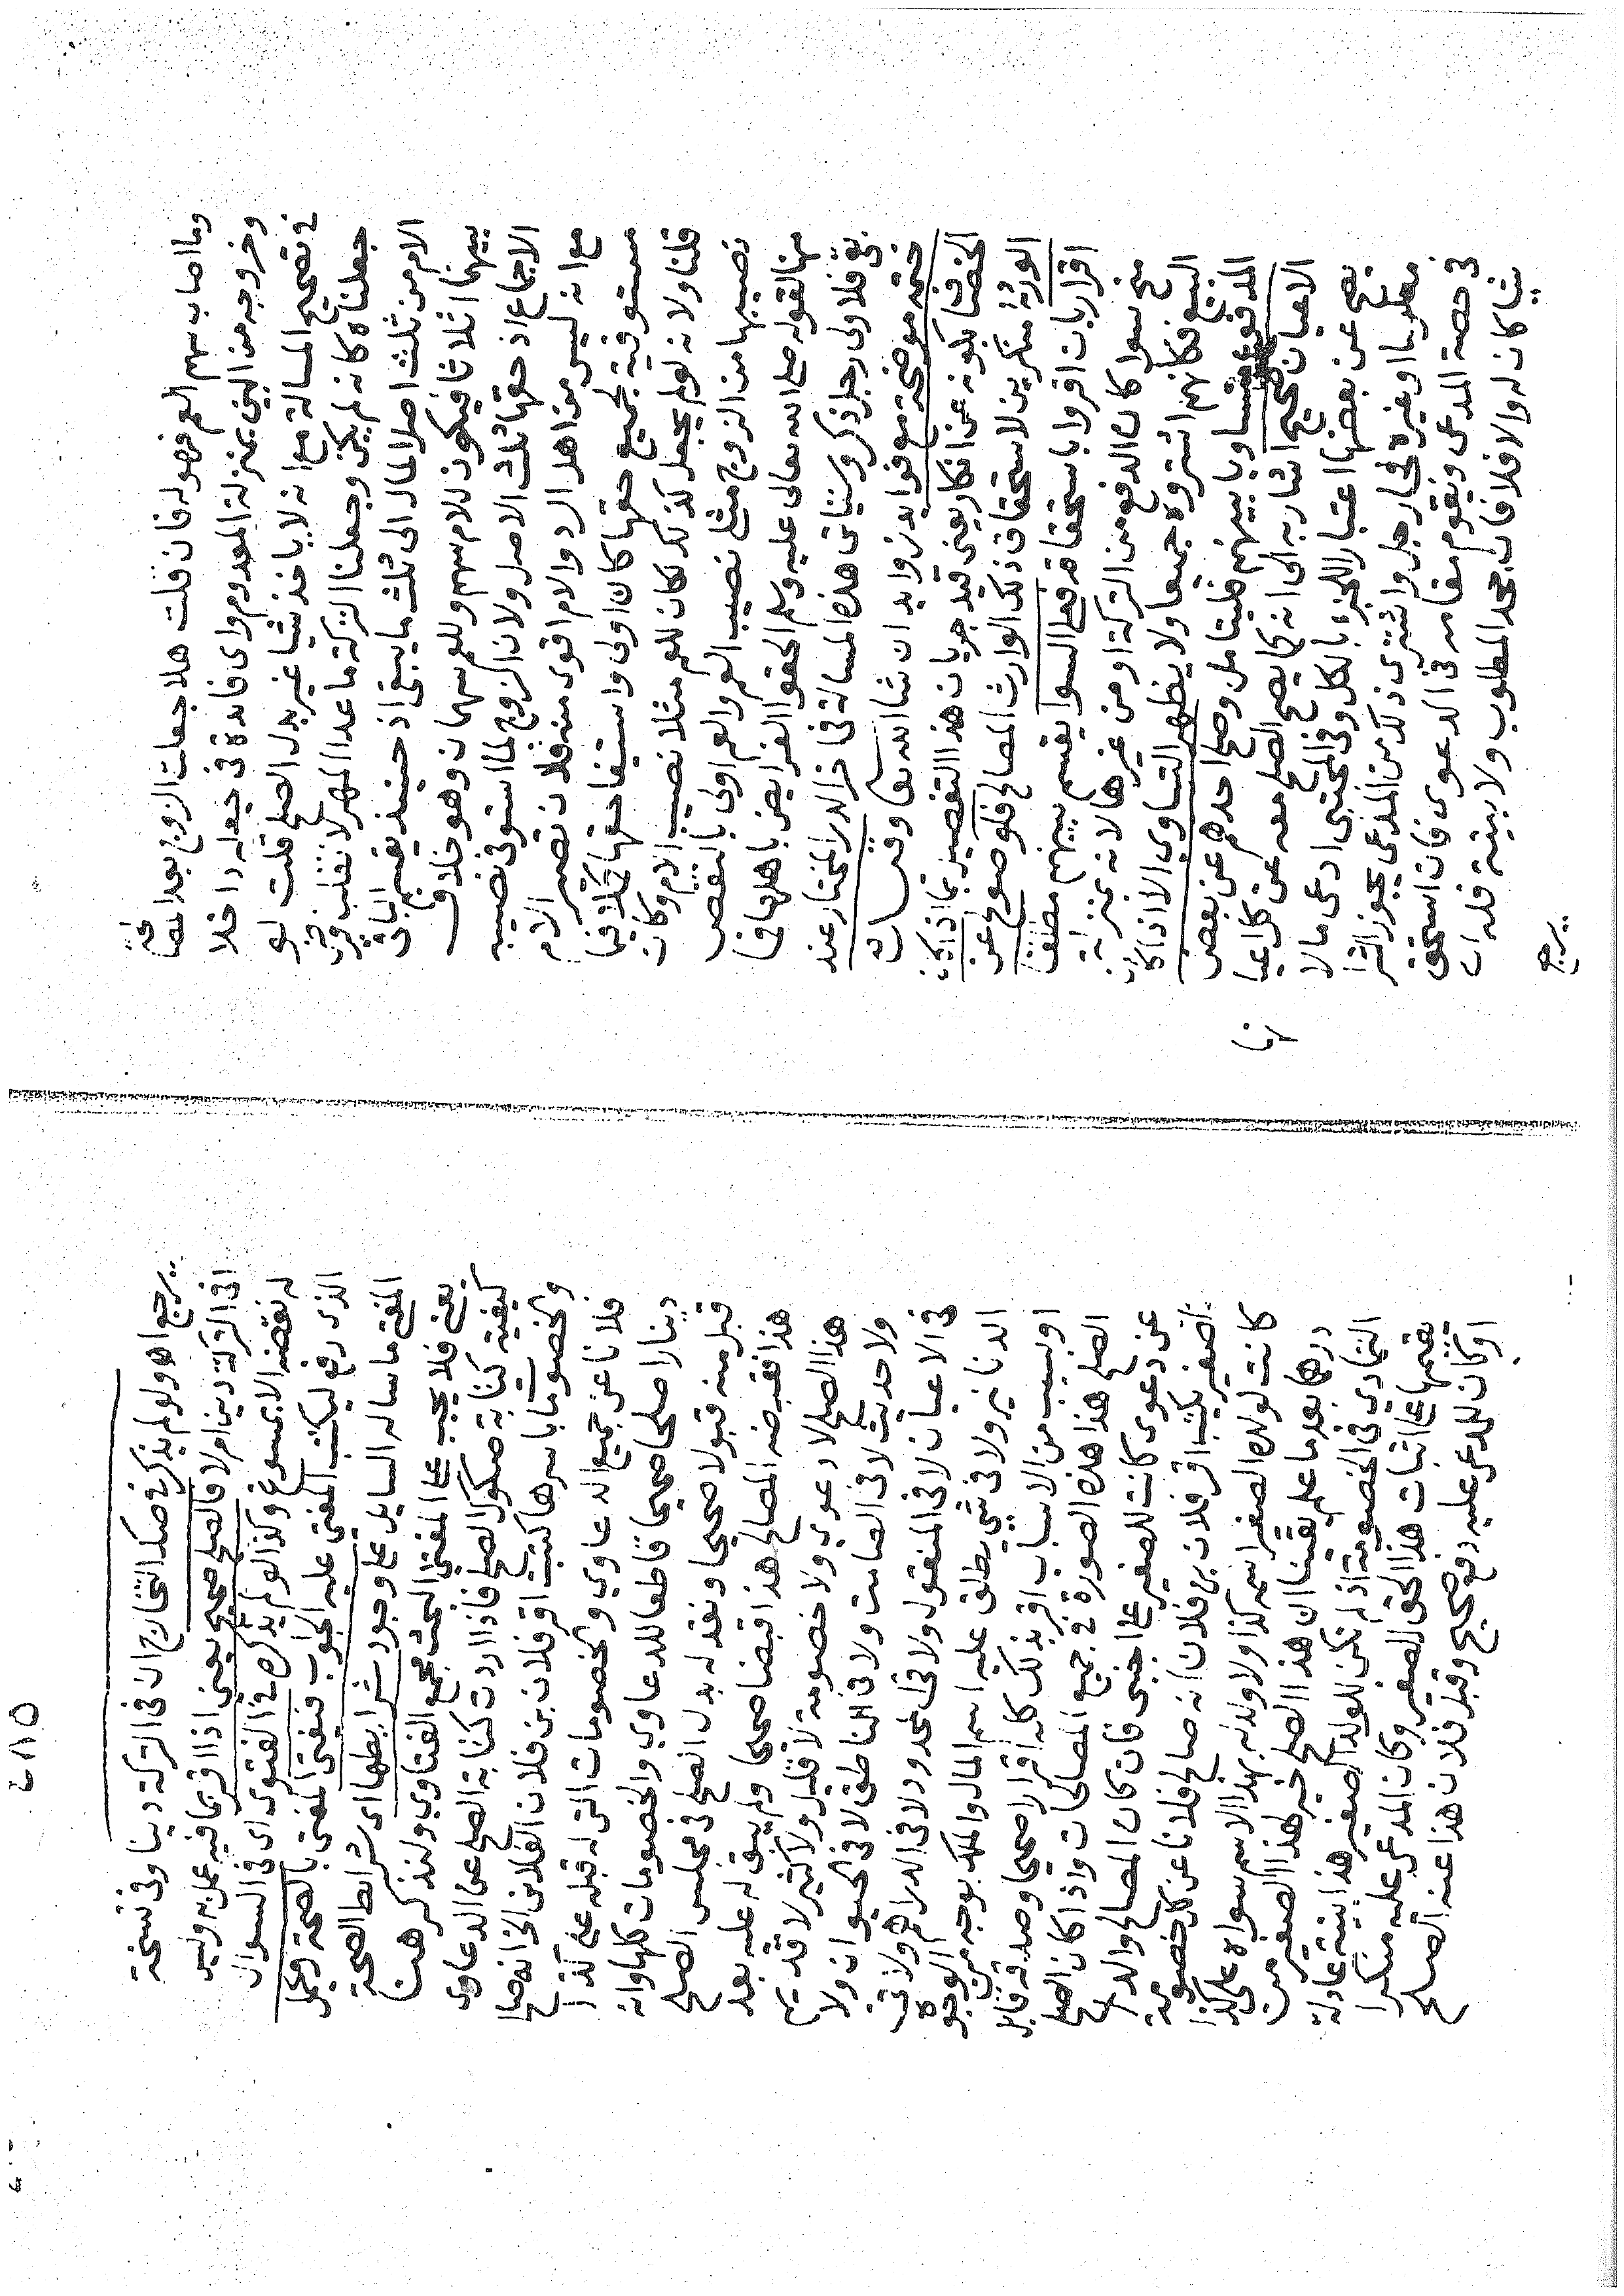 وما اصاب سهم العم فهو له فان قلت هلا جعلت الزوج بعد المصالحة
وخروجه من البين بمنزلة المعدوم واى فائدة فى جعله داخلا
فى تصحيح المسالة مع انه لا ياخذ شيا غير بدل الصلح قلت لو
جعلناه كانه لم يكن وجعلنا التركة ما عدا المهر لانقلب فرض
الام من ثلث اصل المال الى ثلث ما يبقى اذ حينئذ يقسم الباقى
بينهما اثلاثا فيكون للام سهم وللعم سهمان وهو خلاف
الاجماع اذ حقها ثلث الاصل ولان الزوج لما استوفى نصيبه
مع انه ليس من اهل الرد والام اقوى منه فلان تصير الام
مستوفية لجميع حقها كان اولى واستيفا حقها كملا فيما
قلنا ولانه لو لم يجعل كذلك لكان للعم مثلا نصيب الام وكان
نصيبها من الزوج مثلى نصيب العم والعم اولى بالنقص
منها لقوله صلى الله تعالى عليه وسلم الحقوا الفرايض باهلها فما
بقى فلاولى رجل ذكر وسياتى هذه المسالة فى اخر الدر المختار عند
ختمه موضحة مع فوايد زوايد ان شا الله تعالى وقيده
الخصاف بكونه عن انكار يعنى قيد جريان هذا التفصيل بما اذا كان
الورثة منكرين لاستحقاق ذلك الوارث المصالح فلو صولح عن
اقرار بان اقروا باستحقاقه فعلى السوا يقسم بينهم مطلقا
منح سوا كان الدفع من التركة او من غيرها لانه بمنزلة
البيع فكانهم اشتروه جميعا ولا يظهر التساوى الا اذا كان
المدفوع متساويا بينهم فليتامل وصلح احدهم عن بعض
الاعيان صحيح اشار به الى انه كما يصح الصلح معه عن كل اعيانها
يصح عن بعضها اعتبارا للجزء بالكل وفى المجتبى ادعى مالا
معلوما او غيره فجا رجل واشترى ذلك من المدعى يجوز الشرا
فى حصة المدعى ويقوم مقامه فى الدعوى فان استحق
شيا كان له والا فلا فان جحد المطلوب ولا بينة فله ان
يرجع
يرجع اهـ ولو لم يذكر فى صك التخارج ان فى التركة دينا وفى نسخة
افى التركة دين ام لا فالصلح صحيح يعنى اذا اقر بما فيه عمل به وليس
له نقضه الا بمسوغ وكذا لو لم يذكره فى الفتوى اى فى السوال
الذى رفع ليكتب المفتى عليه الجواب فيفتى المفتى بالصحة ويحمل
المفتى ما ساله السايل على وجود شرايطها اى شرايط الصحة
بمعنى فلا يجب على المفتى البحث مجمع الفتاوى ولنذكر هنا
كيفية كتابة صكوك الصلح فاذا اردت كتابة الصلح عن الدعاوى
والخصومات باسرها كتبت اقر فلان بن فلان الفلانى الخ انه صالح
فلانا عن جميع الدعاوى والخصومات التى له قبله على كذا
دينارا صلحا صحيحا قاطعا للدعاوى والخصومات كلها وانه
قبل منه قبولا صحيحا ونقد له بدل الصلح فى مجلس الصلح
هذا فقبضه المصالح هذا قبضا صحيحا ولم يبق له عليه بعد
هذا الصلح لا دعوى ولا خصومة لا قليل ولا كثير لا قديم
ولا حديث لا فى الصامت ولا فى الناطق لا فى الحيوان ولا
فى الاعيان لا فى المنقول ولا فى المحدود ولا فى الدراهم ولا فى
الدنانير ولا فى شى يطلق عليه اسم المال والملك بوجه من الوجوه
او بسبب من الاسباب اقر بذلك كله اقرارا صحيحا وصدقه فلان
الصلح هذا هذه الصورة فى جميع المصالحات واذا كان الصلح
عن دعوى كانت للصغير على اجنبى فان كان المصالح والد
الصغير يكتب اقر فلان بن فلان انه صالح فلانا عن كل خصومة
كانت لولده الصغير اسمه كذا ولا ولد له بهذا الاسم سواه على كذا
درهما بعد ما علم يقينا ان هذا الصلح خير لهذا الصغير من
التمادى فى الخصومة اذ لم تكن للولد الصغير هذا بينة عادلة
يقيمها على اثبات هذا الحق للصغير وكان المدعى عليه منكرا
او كان للمدعى عليه دفع صحيح وقبل فلان هذا عنه الصلح